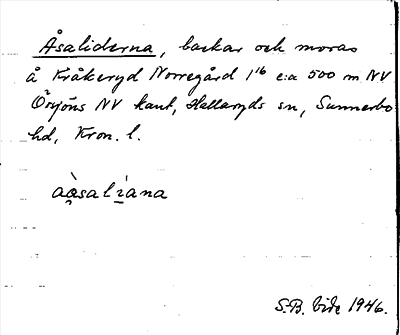 Åsaliderna, backar och moras
å Kråkeryd Norregård 1¹⁶ c:a 500 m NV
Örsjöns NV kant, Hallaryds sn, Sunnerbo
hd, Kron. l.
aå̀saliána
S.B. 1946.